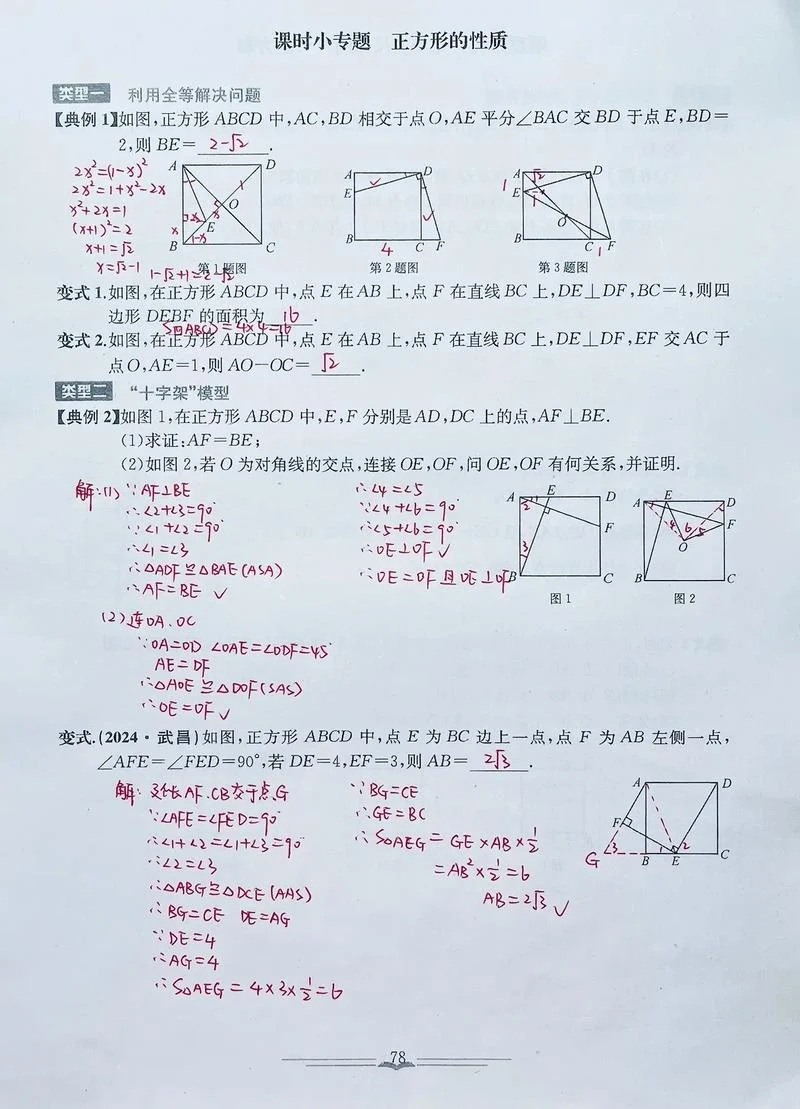 课时小专题 正方形的性质
类型一 利用全等解决问题
【典例1】如图,正方形ABCD中,AC,BD相交于点O,AE平分∠BAC交BD于点E,BD=
2,则BE=2-√2.
2x²=(1-x)²
2x²=1+x²-2x
x²+2x=1
(x+1)²=2
x+1=√2
x=√2-1
1-√2+1=2-√2
A D O E B C
x x 1-x 1
第1题图
A D E B C F
4
第2题图
A D E O B C F
1 √2 1 1
第3题图
变式1.如图,在正方形ABCD中,点E在AB上,点F在直线BC上,DE⊥DF,BC=4,则四
边形DEBF的面积为16.
S□ABCD=4×4=16
变式2.如图,在正方形ABCD中,点E在AB上,点F在直线BC上,DE⊥DF,EF交AC于
点O,AE=1,则AO-OC=√2.
类型二 “十字架”模型
【典例2】如图1,在正方形ABCD中,E,F分别是AD,DC上的点,AF⊥BE.
(1)求证:AF=BE;
(2)如图2,若O为对角线的交点,连接OE,OF,问OE,OF有何关系,并证明.
解:(1)∵AF⊥BE
∴∠2+∠3=90°
∵∠1+∠2=90°
∴∠1=∠3
∴△ADF≌△BAE(ASA)
∴AF=BE
(2)连OA、OC
∵OA=OD ∠OAE=∠ODF=45°
AE=DF
∴△AOE≌△DOF(SAS)
∴OE=OF
∴∠4=∠5
∵∠4+∠6=90°
∴∠5+∠6=90°
∴OE⊥OF
∴OE=OF且OE⊥OF
A E D 1 2 F 3 B C
图1
A E D 4 6 5 F O B C
图2
变式.(2024·武昌)如图,正方形ABCD中,点E为BC边上一点,点F为AB左侧一点,
∠AFE=∠FED=90°,若DE=4,EF=3,则AB=2√3.
解:延长AF、CB交于点G
∵∠AFE=∠FED=90°
∴∠1+∠2=∠1+∠3=90°
∴∠2=∠3
∴△ABG≌△DCE(AAS)
∴BG=CE DE=AG
∵DE=4
∴AG=4
∴S△AEG=4×3×1/2=6
∵BG=CE
∴GE=BC
∴S△AEG=GE×AB×1/2
=AB²×1/2=6
AB=2√3
A D F G 3 1 2 B E C
78